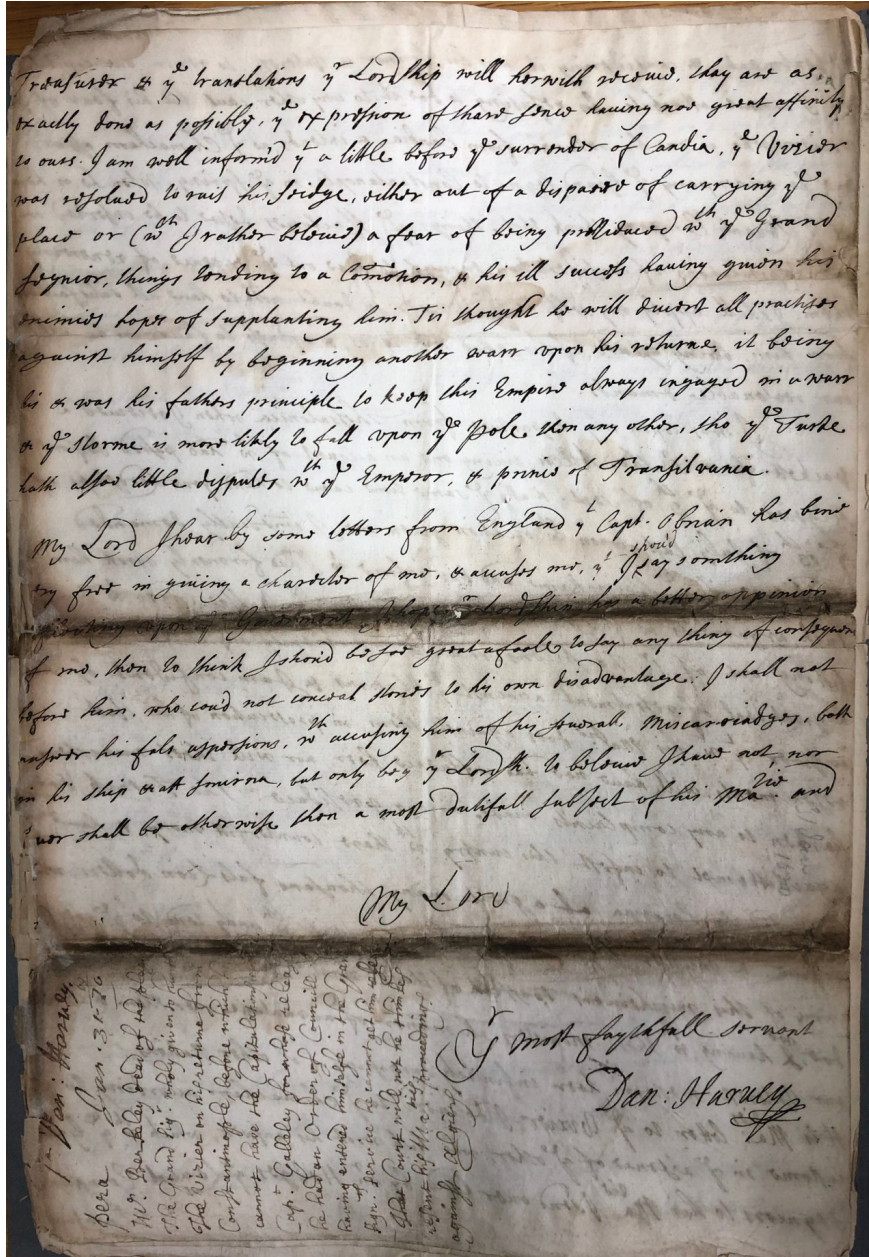 Treasurer & yͤ translations yʳ Lordship will herwith receive, they are as
exactly done as possible, yͤ expression of thare sence having noe great affinity
to ours. I am well inform'd yᵗ a little before yͤ surrender of Candia, yͤ Vizier
was resolued to rais his seidge, either out of a dispaire of carrying yͤ
place or (wᶜʰ I rather beleive) a fear of being prejudiced wᵗʰ yͤ Grand
Segnior, things tending to a Comotion, & his ill success having given his
enimies hopes of supplanting him. Tis thought he will divert all practises
against himself by beginning another warr vpon his returne, it being
his & was his fathers principle to keep this Empire always ingaged in a warr
& yͤ storme is more likly to fall vpon yͤ Pole then any other, tho yͤ Turke
hath allsoe little disputes wᵗʰ yͤ Emperor, & prince of Transilvania.
My Lord I hear by some letters from England yᵗ Capt. Obrian has bine
very free in giving a charecter of me, & accuses me, yᵗ I shou'd say something
upon yͤ Government I hope yʳ Lordship has a better oppinion
of me, then to think I shou'd be soe great a foole to say any thing of consequence
before him, who cou'd not conceal stories to his own disadvantage; I shall not
answer his fals aspersions, wᵗʰ accusing him of his severall miscariadges, both
in his ship & att Smirna, but only beg yʳ Lordsh. to beleive I have not, nor
ever shall be otherwise then a most dutifull subject of his Maᵗⁱᵉ and
My Lord
Yʳ most faythfull servant
Dan: Harvey
Sʳ Dan: Harvey.
Pera Jan. 31. 70
Mʳ Berkeley dead of the
The Grand Sigʳ. wholy given to
The Vizier on his returne from
Constantinople, before which he
cannot have the Capitulations
Cap. Galleley for whose release
he had an Order of Councill
having entered himself in the Gran
Signʳ. service he cannot get him
That Court will not be
resent his Maᵗⁱᵉˢ proceedings
against Algiers.